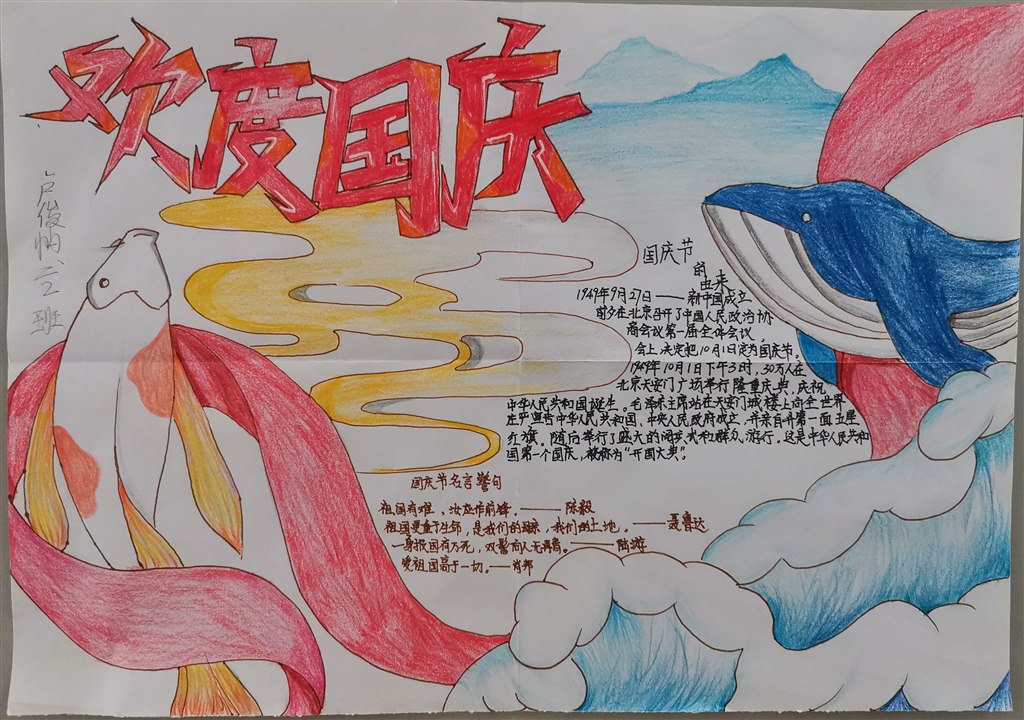 欢度国庆
卢俊 二.2班
国庆节
的
由来
1949年9月27日——新中国成立
前夕在北京召开了中国人民政治协
商会议第一届全体会议。
会上决定把10月1日定为国庆节。
1949年10月1日下午3时,30万人在
北京天安门广场举行隆重庆典,庆祝
中华人民共和国诞生。毛泽东主席站在天安门城楼上向全世界
庄严宣告中华人民共和国、中央人民政府成立,并亲自升第一面五星
红旗。随后举行了盛大的阅兵式和群众游行。这是中华人民共和
国第一个国庆,被称为“开国大典”。
国庆节名言警句
祖国有难,汝应作前锋。——陈毅
祖国更重于生命,是我们的母亲,我们的土地。——聂鲁达
一身报国有万死,双鬓向人无再青。——陆游
爱祖国高于一切。——肖邦